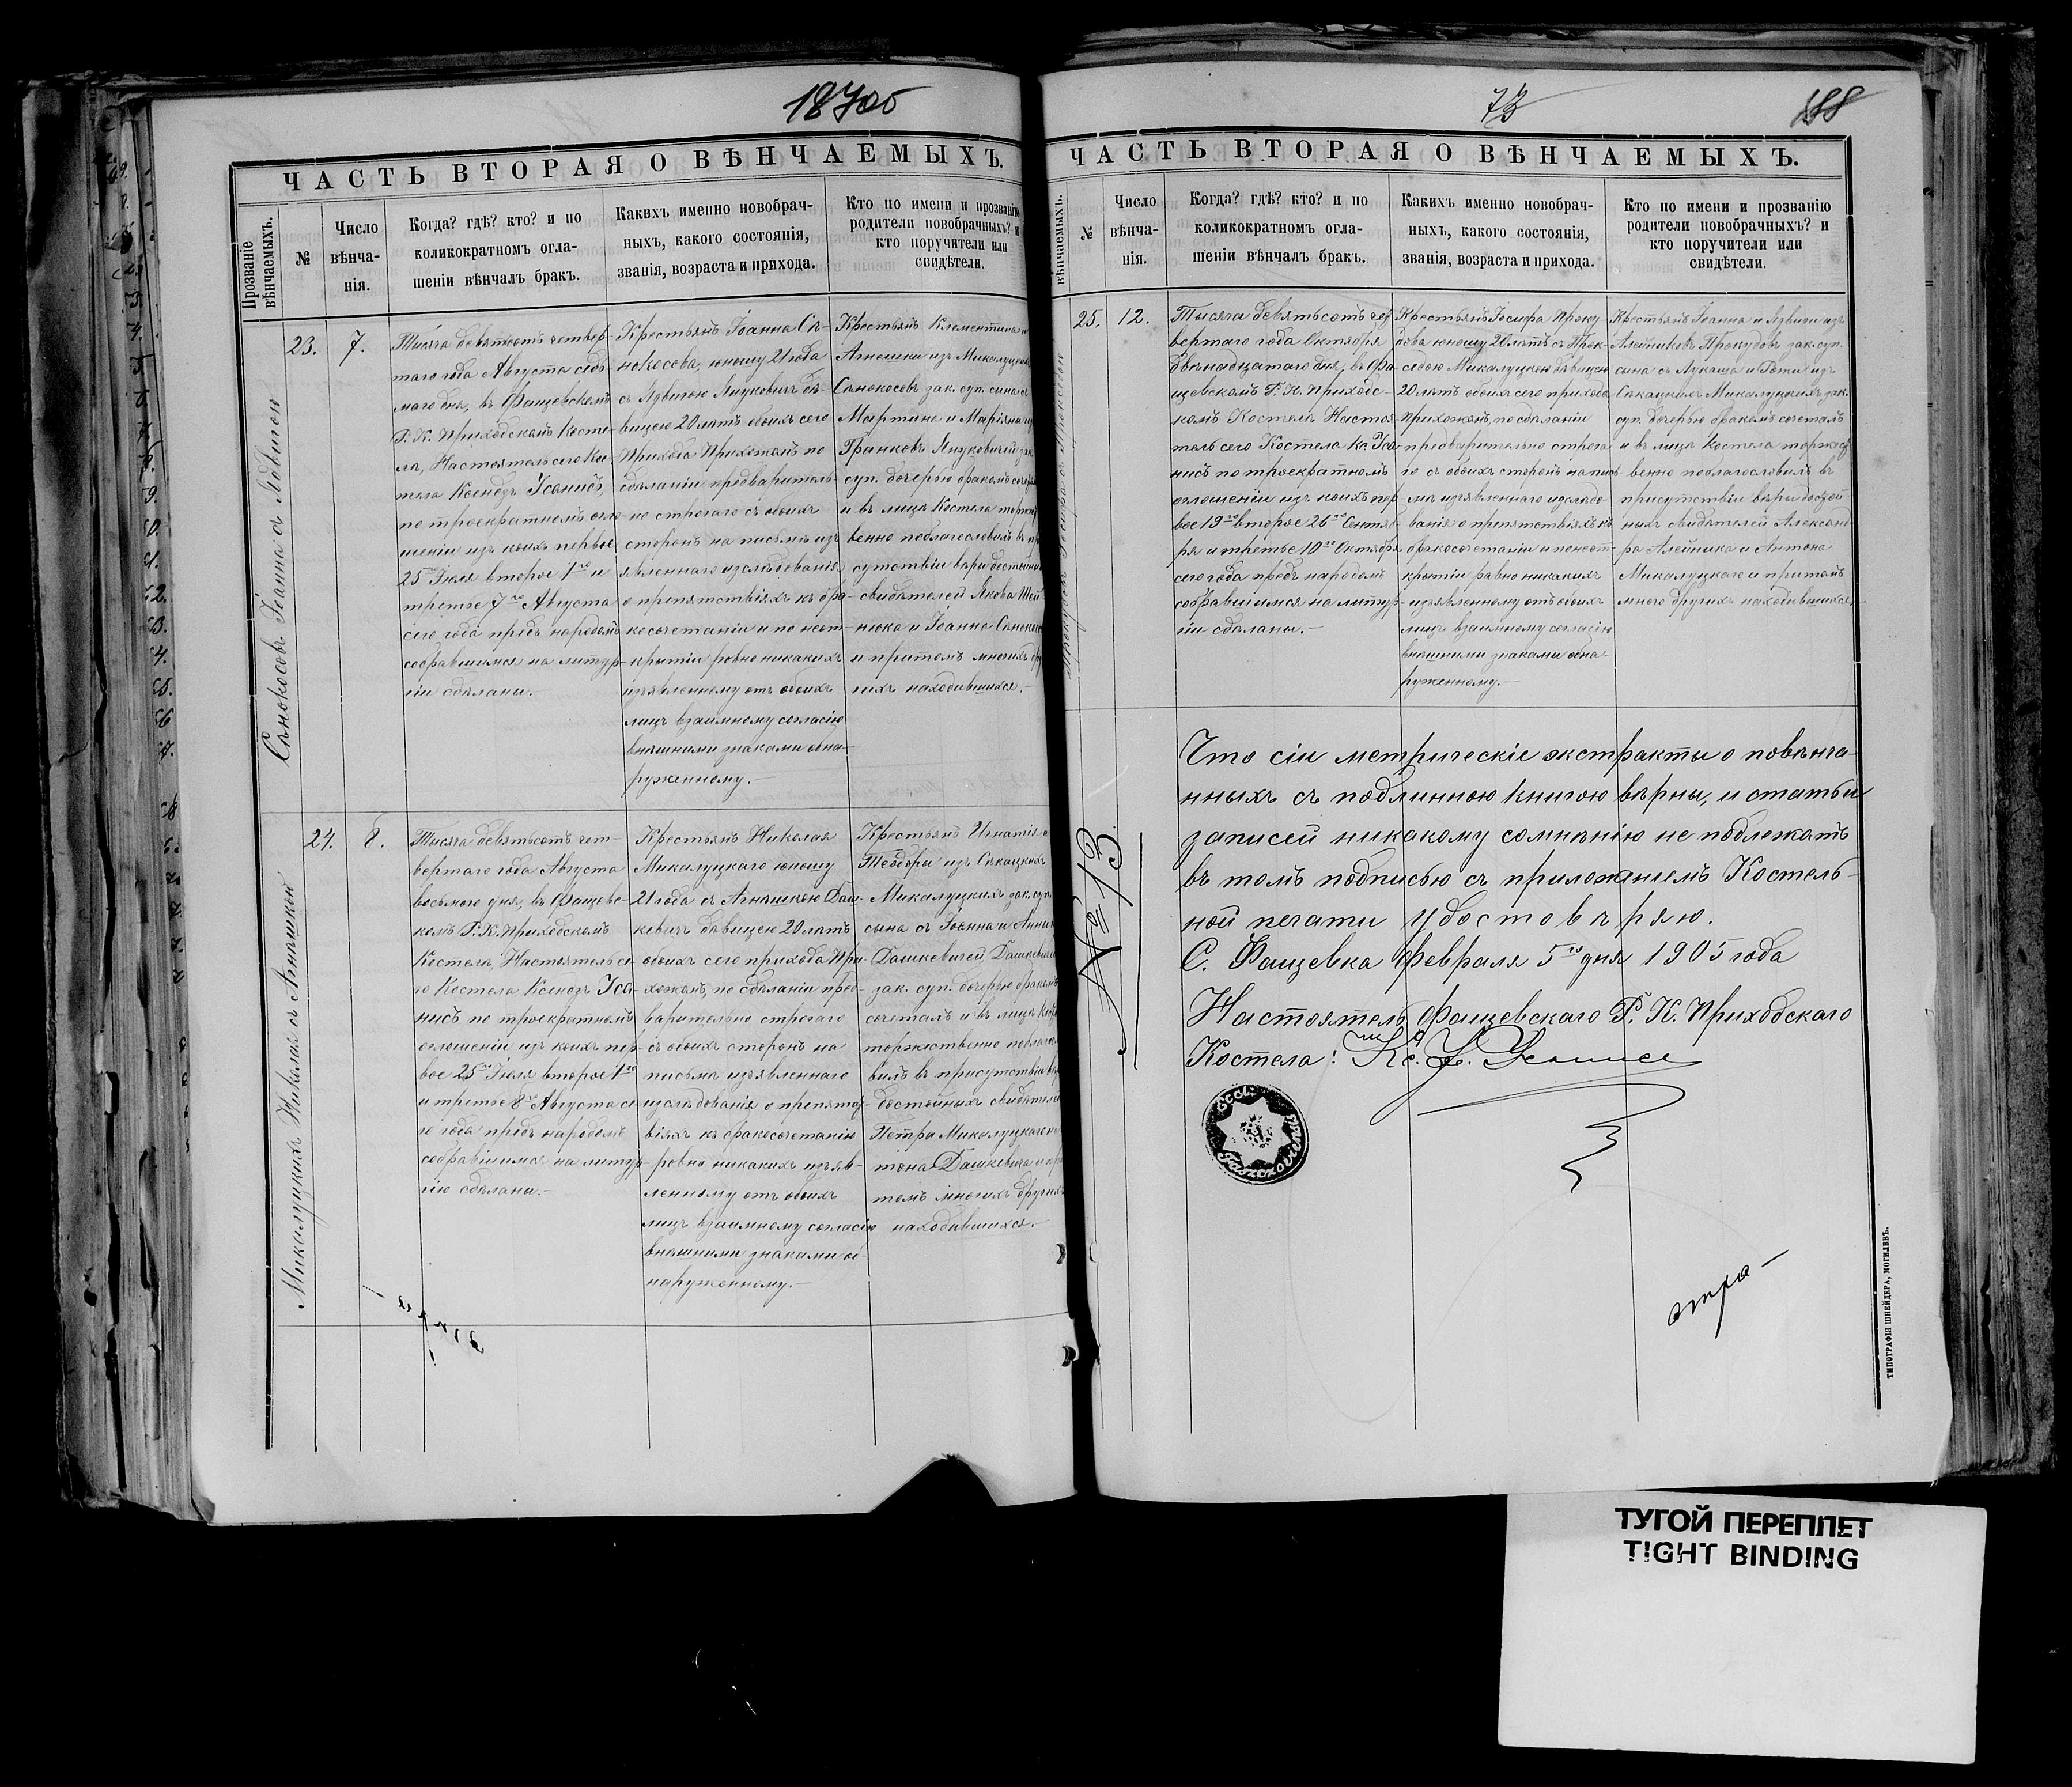 ЧАСТЬ ВТОРАЯ О ВѢНЧАЕМЫХЪ.
Прозваніе вѣнчаемыхъ.
№
Число вѣнча-
нія.
Когда? гдѣ? кто? и по
коликократномъ огла-
шеніи вѣнчалъ бракъ.
Какихъ именно новобрач-
ныхъ, какого состоянія,
званія, возраста и прихода.
Кто по имени и прозванію
родители новобрачныхъ? и
кто поручители или
свидѣтели.
Сѣнокосовъ Іоанна съ Ядвигою
23.
7.
Тысяча девятьсотъ четвер-
таго года Августа седь-
маго дня, въ Фащевскомъ
Р. К. Приходскомъ Косте-
лѣ, Настоятель сего Кос-
тела Ксендзъ
по троекратномъ огла-
шеніи изъ коихъ первое
25го Іюля второе 1го и
третье 7го Августа
сего года предъ народомъ
собравшимся на литур-
гіи сдѣланы.
Крестьянъ Іоанна Сѣ-
нокосова, юношу 21 года
съ Ядвигою Януковичъ дѣ-
вицею 20 лѣтъ обоихъ сего
прихода Прихожанъ по
сдѣланіи предваритель-
но строгаго съ обоихъ
сторонъ на письмѣ изъ-
явленнаго изслѣдованія
о препятствіяхъ къ бра-
косочетанію и по неот-
крытіи ровно никакихъ
изъявленному отъ обоихъ
лицъ взаимному согласію
внѣшними знаками обна-
руженному.—
Крестьянъ Клементина и
Агнешки изъ
Сѣнокосовъ зак. суп. сына съ
Мартина и Маріянны изъ
Гранковъ Януковичей зак.
суп. дочерью бракомъ
и въ лицѣ Костела
венно поблагословилъ въ
сутствіи вѣры
свидѣтелей Якова Шей-
нюка и Іоанна
и притомъ многихъ дру-
гихъ находившихся.—
Микалуцкихъ Николая съ Агнѣшкою
24.
8.
Тысяча девятьсотъ чет-
вертаго года Августа
восьмого дня, въ Фащевс-
комъ Р. К. Приходскомъ
Костелѣ, Настоятель се-
го Костела Ксендзъ
по троекратномъ
оглашеніи изъ коихъ пер-
вое 25го Іюля второе 1го
и третье 8го Августа се-
го года предъ народомъ
собравшимся на литур-
гію сдѣланы.—
Крестьянъ Николая
Микалуцкаго юношу
21 года съ Агнѣшкою Даш-
кевичъ дѣвицею 20 лѣтъ
обоихъ сего прихода При-
хожанъ, по сдѣланіи пред-
варительно строгаго
съ обоихъ сторонъ на
письмѣ изъявленнаго
изслѣдованія о препятст-
віяхъ къ бракосочетанію
ровно никакихъ изъяв-
ленному отъ обоихъ
лицъ взаимному согласію
внѣшними знаками об-
наруженному.—
Крестьянъ Игнатія и
Теодоры изъ Сѣкацкихъ
Микалуцкихъ зак. суп.
сына съ Іоанна и Анны
Дашкевичей, Дашкевичей
зак. суп. дочерью бракомъ
сочеталъ и въ лицѣ
торжественно
вилъ въ присутствіи вѣры
достойныхъ свидѣтелей
Петра Микалуцкаго и
Дашкевича и при
томъ многихъ другихъ
находившихся.—
73
188
ЧАСТЬ ВТОРАЯ О ВѢНЧАЕМЫХЪ.
вѣнчаемыхъ.
№
Число
вѣнча-
нія.
Когда? гдѣ? кто? и по
коликократномъ огла-
шеніи вѣнчалъ бракъ.
Какихъ именно новобрач-
ныхъ, какого состоянія,
званія, возраста и прихода.
Кто по имени и прозванію
родители новобрачныхъ? и
кто поручители или
свидѣтели.
25.
12.
Тысяча девятьсотъ чет-
вертаго года Октября
двѣнадцатаго дня, въ Фа-
щевскомъ Р. К. Приходс-
комъ Костелѣ Настоя-
тель сего Костела Кс.
по троекратномъ
оглашеніи изъ коихъ пер-
вое 19го второе 26го Сентяб-
ря и третье 10го Октября
сего года предъ народомъ
собравшимся на литур-
гіи сдѣланы.—
Крестьянъ Іосифа Проку-
дова юношу 20 лѣтъ съ Прок-
седою Микалуцкою дѣвицею
20 лѣтъ обоихъ сего прихода
прихожанъ, по сдѣланіи
предварительно строга-
го съ обоихъ сторонъ напись-
мѣ изъявленнаго изслѣдо-
ванія о препятствіяхъ къ
бракосочетанію и по неот-
крытіи равно никакихъ
изъявленному отъ обоихъ
лицъ взаимному согласію
внѣшними знаками обна-
руженному.—
Крестьянъ Іоанна и Ядвиги изъ
Алейниковъ Прокудовъ зак. суп.
сына съ Лукаша и изъ
Сѣкацкихъ Микалуцкихъ зак.
суп. дочерью бракомъ сочеталъ
и въ лицѣ Костела торжест-
венно поблагословилъ въ
присутствіи вѣры достой-
ныхъ свидѣтелей Александ-
ра Алейника и Антона
Микалуцкаго и притомъ
много другихъ находившихся.
Что сіи метрическіе экстракты о повѣнча-
нныхъ съ подлинною книгою вѣрны, и статьи
записей никакому сомнѣнію не подлежатъ
въ томъ подписью съ приложеніемъ Костель-
ной печати удостовѣряю.
С. Фащевка Февраля 5го дня 1905 года
Настоятель Фащевскаго Р. К. Приходскаго
Костела: Кс.
№ 13.
ТИПОГРАФІЯ ШНЕЙДЕРА, МОГИЛЕВЪ.
ТУГОЙ ПЕРЕПЛЕТ
TIGHT BINDING